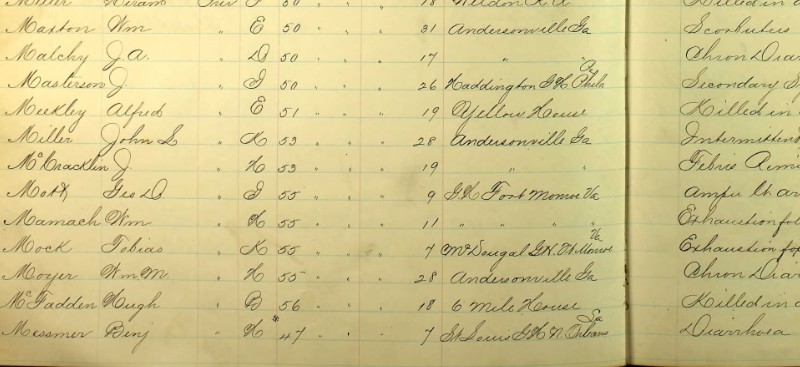 Miller Hiram Priv F 50 " " 18 Weldon R.R. Killed in a
Maxton Wm " E 50 " " 31 Andersonville Ga Scorbutus
Malchy J.A. " D 50 " " 17 " Chron Diar
Masterson J. " I 50 " " 26 Haddington G.H. Phila Pa Secondary
Meekley Alfred " E 51 " " 19 Yellow House Killed in
Miller John S " K 53 " " 28 Andersonville Ga Intermittent
McCracklin J. " H 53 " " 19 " " Febris
Mott Geo D. " I 55 " " 9 G.H. Fort Monroe Va Ampu
Mamach Wm " H 55 " " 11 " " " " Exhaustion fol
Mock Tobias " K 55 " " 7 McDougal G.H. Ft. Monroe Va Exhaustion fol
Moyer Wm M. " H 55 " " 28 Andersonville Ga Chron Diar
McFadden Hugh " B 56 " " 18 6 Mile House Killed in a
Messmer Benj " H *47 " " 7 St Louis G.H. N. Orleans La Diarrhoea